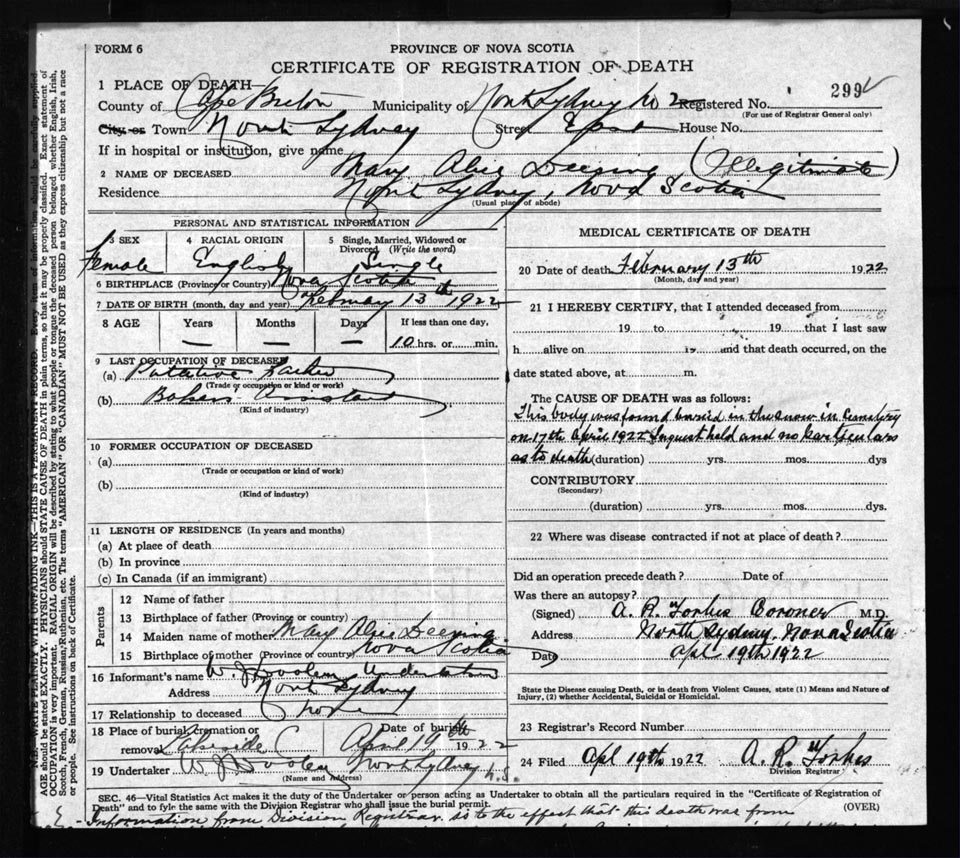 FORM 6
PROVINCE OF NOVA SCOTIA
CERTIFICATE OF REGISTRATION OF DEATH
299
1 PLACE OF DEATH
County of Cape Breton Municipality of North Sydney No 2 Registered No.
(For use of Registrar General only)
City or Town North Sydney Street East House No.
If in hospital or institution, give name
2 NAME OF DECEASED Mary Alice Deeping (Illegitimate)
Residence North Sydney, Nova Scotia
(Usual place of abode)
PERSONAL AND STATISTICAL INFORMATION
3 SEX Female
4 RACIAL ORIGIN English
5 Single, Married, Widowed or Divorced (Write the word) Single
6 BIRTHPLACE (Province or Country) Nova Scotia
7 DATE OF BIRTH (month, day and year) February 13th 1922
8 AGE Years — Months — Days — If less than one day, 10 hrs. or min.
9 LAST OCCUPATION OF DECEASED
(a) Putative Father
(Trade or occupation or kind of work)
(b) Bakers Assistant
(Kind of industry)
10 FORMER OCCUPATION OF DECEASED
(a)
(Trade or occupation or kind of work)
(b)
(Kind of industry)
11 LENGTH OF RESIDENCE (In years and months)
(a) At place of death
(b) In province
(c) In Canada (if an immigrant)
Parents
12 Name of father
13 Birthplace of father (Province or country)
14 Maiden name of mother Mary Alice Deeping
15 Birthplace of mother (Province or country) Nova Scotia
16 Informant's name W. J. Dooley Undertaker
Address North Sydney
17 Relationship to deceased None
18 Place of burial, cremation or removal Lakeside Date of burial April 19th 1922
19 Undertaker W J Dooley North Sydney N.S.
(Name and Address)
MEDICAL CERTIFICATE OF DEATH
20 Date of death February 13th 1922
(Month, day and year)
21 I HEREBY CERTIFY, that I attended deceased from
19 to 19 that I last saw
h alive on 19 and that death occurred, on the
date stated above, at m.
The CAUSE OF DEATH was as follows:
This body was found buried in the snow in Cemetery
on 17th April 1922 Inquest held and no particulars
as to death (duration) yrs. mos. dys
CONTRIBUTORY
(Secondary)
(duration) yrs. mos. dys.
22 Where was disease contracted if not at place of death?
Did an operation precede death? Date of
Was there an autopsy?
(Signed) A. R. Forbes Coroner M.D.
Address North Sydney, Nova Scotia
Date Apl 19th 1922
State the Disease causing Death, or in death from Violent Causes, state (1) Means and Nature of Injury, (2) whether Accidental, Suicidal or Homicidal.
23 Registrar's Record Number
24 Filed Apl 19th 1922 A. R. Forbes
Division Registrar
SEC. 46—Vital Statistics Act makes it the duty of the Undertaker or person acting as Undertaker to obtain all the particulars required in the "Certificate of Registration of
Death" and to fyle the same with the Division Registrar who shall issue the burial permit.
(OVER)
Information from Division Registrar is to the effect that this death was from